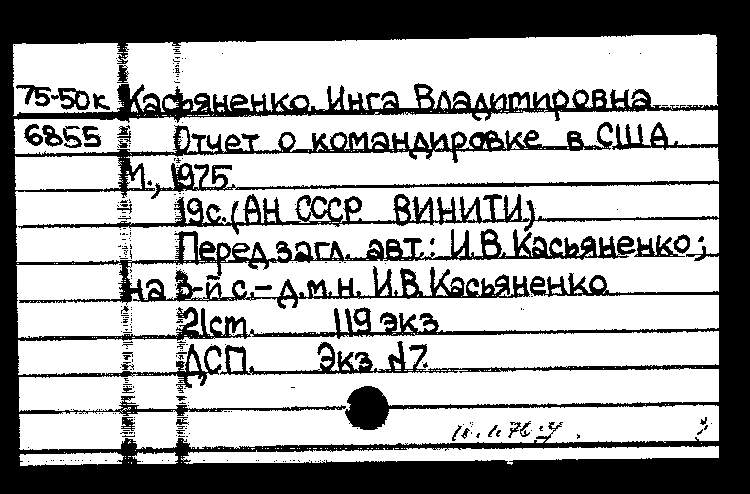 75-50к Касьяненко, Инга Владимировна
6855 Отчет о командировке в США.
М., 1975.
19с. (АН СССР ВИНИТИ).
Перед загл. авт.: И.В. Касьяненко;
на 3-й с.- д.м.н. И.В. Касьяненко
21ст. 119 экз
ДСП. Экз N7.